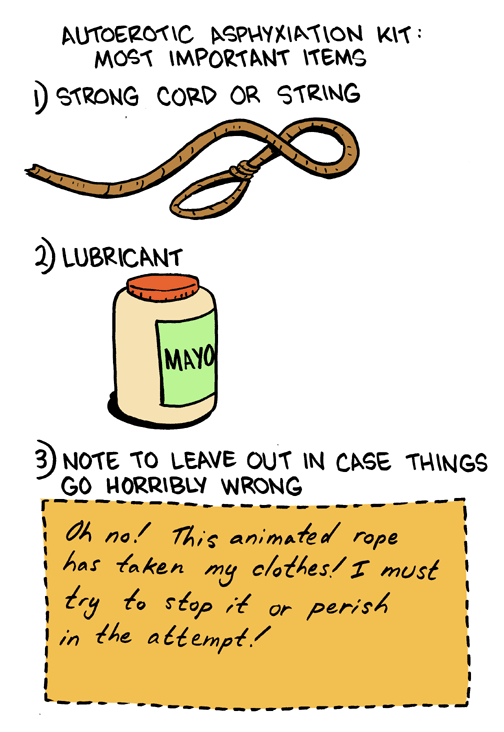 AUTOEROTIC ASPHYXIATION KIT:
MOST IMPORTANT ITEMS
1) STRONG CORD OR STRING
2) LUBRICANT
MAYO
3) NOTE TO LEAVE OUT IN CASE THINGS
GO HORRIBLY WRONG
Oh no! This animated rope
has taken my clothes! I must
try to stop it or perish
in the attempt!